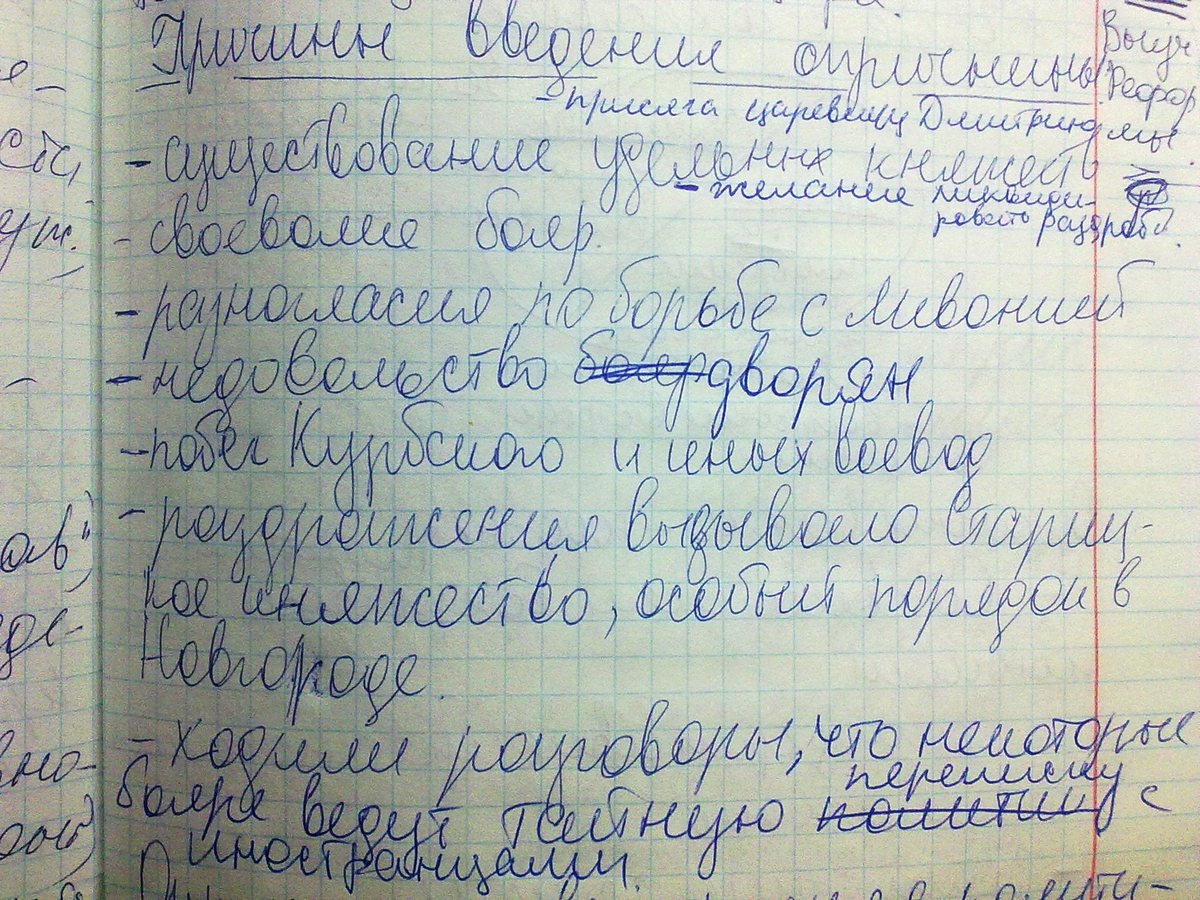 Причины введения опричнины
- присяга царевичу Дмитрию
- существование удельных княжеств
- желание ликвиди-
ровать раздроб.
- своеволие бояр.
- разногласия по борьбе с Ливонией
- недовольство дворян
- побег Курбского и иных воевод
- раздражения вызывало Стариц-
кое княжество, особый порядок в
Новгороде.
- ходили разговоры, что некоторые
бояре ведут тайную переписку с
иностранцами.
Выуч
Рефор
мы.